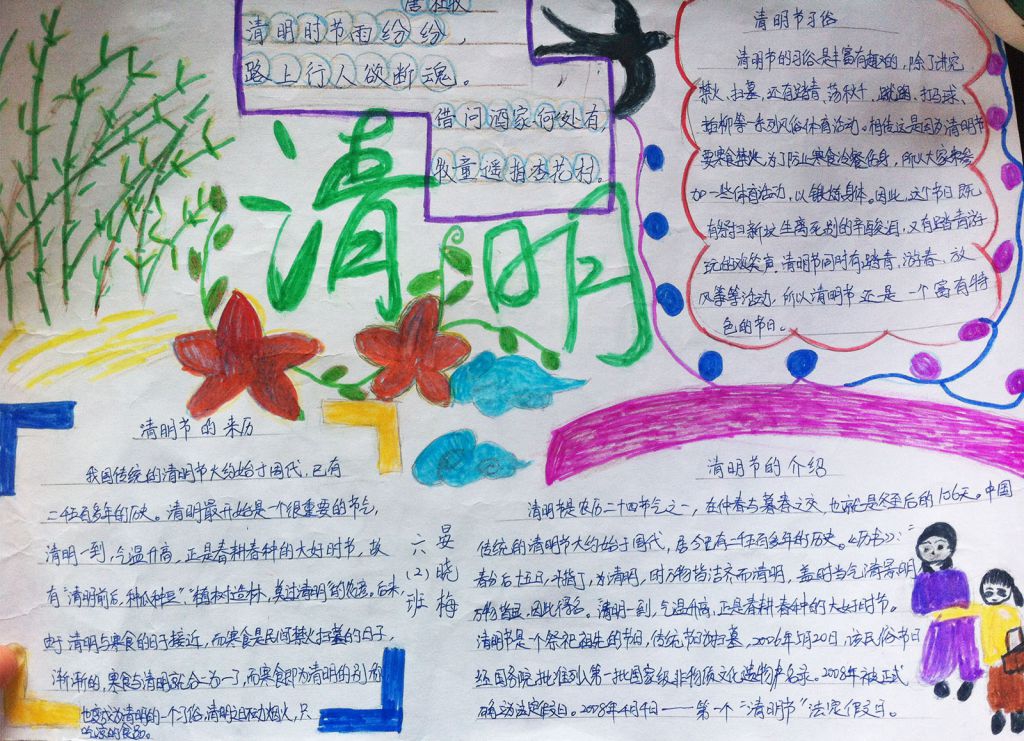 清明时节雨纷纷，
路上行人欲断魂。
借问酒家何处有，
牧童遥指杏花村。
清明
清明节习俗
清明节的习俗是丰富有趣的，除了讲究
禁火、扫墓，还有踏青、荡秋千、蹴踘、打马球、
插柳等一系列风俗体育活动。相传这是因为清明节
要寒食禁火，为了防止寒食冷餐伤身，所以大家来参
加一些体育活动，以锻炼身体。因此，这个节日既
有祭扫新坟生离死别的辛酸泪，又有踏青游
玩的欢笑声。清明节同时有踏青、游春、放
风筝等活动，所以清明节还是一个富有特
色的节日。
清明节的来历
我国传统的清明节大约始于周代，已有
二千五百多年的历史。清明最开始是一个很重要的节气，
清明一到，气温升高，正是春耕春种的大好时节，故
有“清明前后，种瓜种豆”、“植树造林，莫过清明”的农谚。后来，
由于清明与寒食的日子接近，而寒食是民间禁火扫墓的日子，
渐渐的，寒食与清明就合二为一了，而寒食即为清明的别称
也变成为清明的一个习俗，清明之日不动烟火，只
吃凉的食品。
六（2）班
晏晓梅
清明节的介绍
清明节是农历二十四节气之一，在仲春与暮春之交，也就是冬至后的106天。中国
传统的清明节大约始于周代，居今已有二千五百多年的历史。《历书》：“
春分后十五日，斗指丁，为清明，时万物皆洁齐而清明，盖时当气清景明
万物皆显，因此得名。”清明一到，气温升高，正是春耕春种的大好时节。
清明节是个祭祀祖先的节日，传统节日为扫墓，2006年5月20日，该民俗节日
经国务院批准列入第一批国家级非物质文化遗产名录。2008年被正式
确立为法定假日。2008年4月4日——第一个“清明节”法定假日。